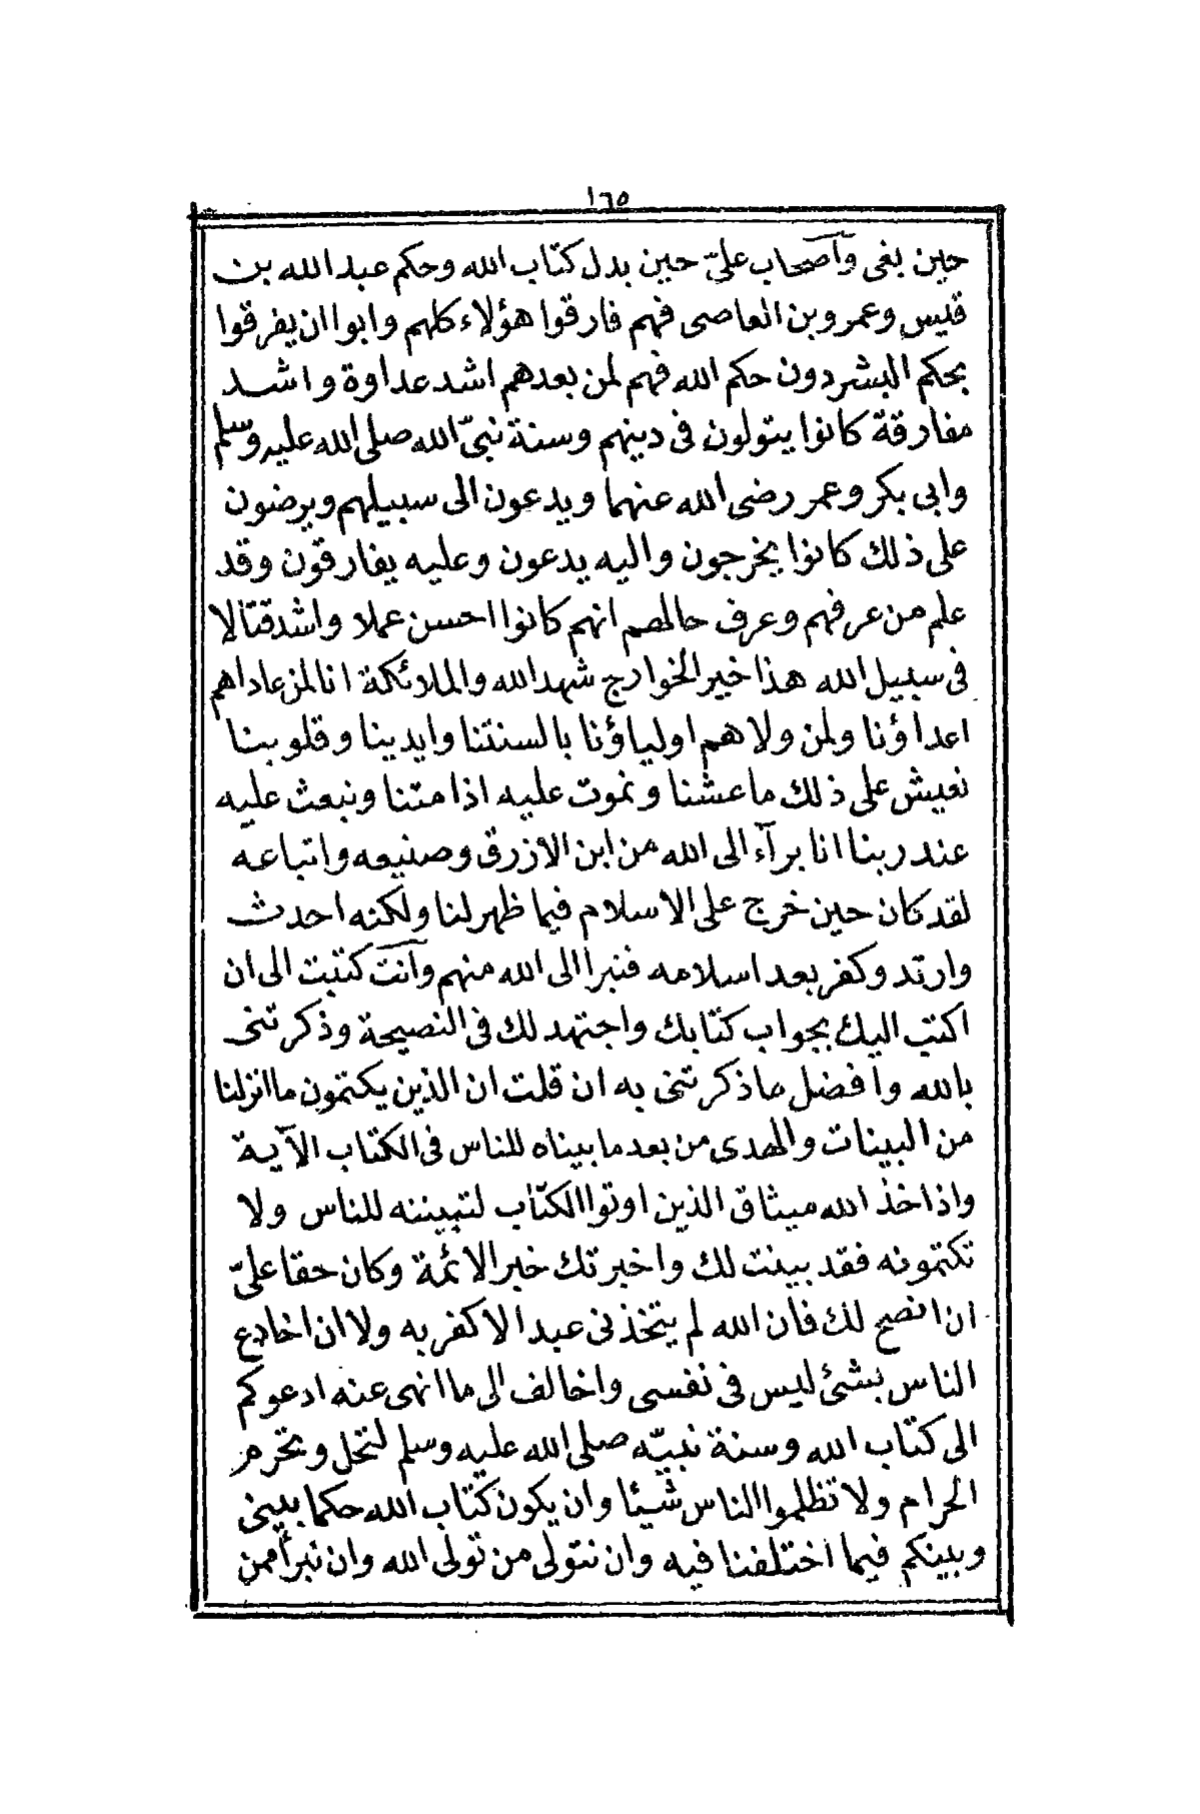 ١٦٥
حين بغى وأصحاب عليّ حين بدل كتاب الله وحكم عبد الله بن
قيس وعمرو بن العاصى فهم فارقوا هؤلاء كلهم وابوا ان يفرقوا
بحكم البشر دون حكم الله فهم لمن بعدهم اشد عداوة واشد
مفارقة كانوا يتولون فى دينهم وسنة نبيّ الله صلى الله عليه وسلم
وابى بكر وعمر رضى الله عنهما ويدعون الى سبيلهم ويرضون
على ذلك كانوا يخرجون واليه يدعون وعليه يفارقون وقد
علم من عرفهم وعرف حالهم انهم كانوا احسن عملا واشد قتالا
فى سبيل الله هذا خبر الخوارج شهد الله والملائكة انا لمن عاداهم
اعداؤنا ولمن ولاهم اولياؤنا بالسنتنا وايدينا وقلوبنا
نعيش على ذلك ما عشنا ونموت عليه اذا متنا ونبعث عليه
عند ربنا انا برآء الى الله من ابن الازرق وصنيعه واتباعه
لقد كان حين خرج على الاسلام فيما ظهر لنا ولكنه احدث
وارتد وكفر بعد اسلامه فنبرا الى الله منهم وأنت كتبت الى ان
اكتب اليك بجواب كتابك واجتهد لك فى النصيحة وذكرتنى
بالله وافضل ما ذكرتنى به ان قلت ان الذين يكتمون ما انزلنا
من البينات والهدى من بعد ما بيناه للناس فى الكتاب الآية
واذ اخذ الله ميثاق الذين اوتوا الكتاب لتبيننه للناس ولا
تكتمونه فقد بينت لك واخبرتك خبر الائمة وكان حقا عليّ
ان انصح لك فان الله لم يتخذنى عبدا لاكفر به ولا ان اخادع
الناس بشئ ليس فى نفسى واخالف الى ما انهى عنه ادعوكم
الى كتاب الله وسنة نبيّه صلى الله عليه وسلم لتحل وتحرم
الحرام ولا تظلموا الناس شيئا وان يكون كتاب الله حكما بينى
وبينكم فيما اختلفنا فيه وان نتولى من تولى الله وان نبرأ ممن